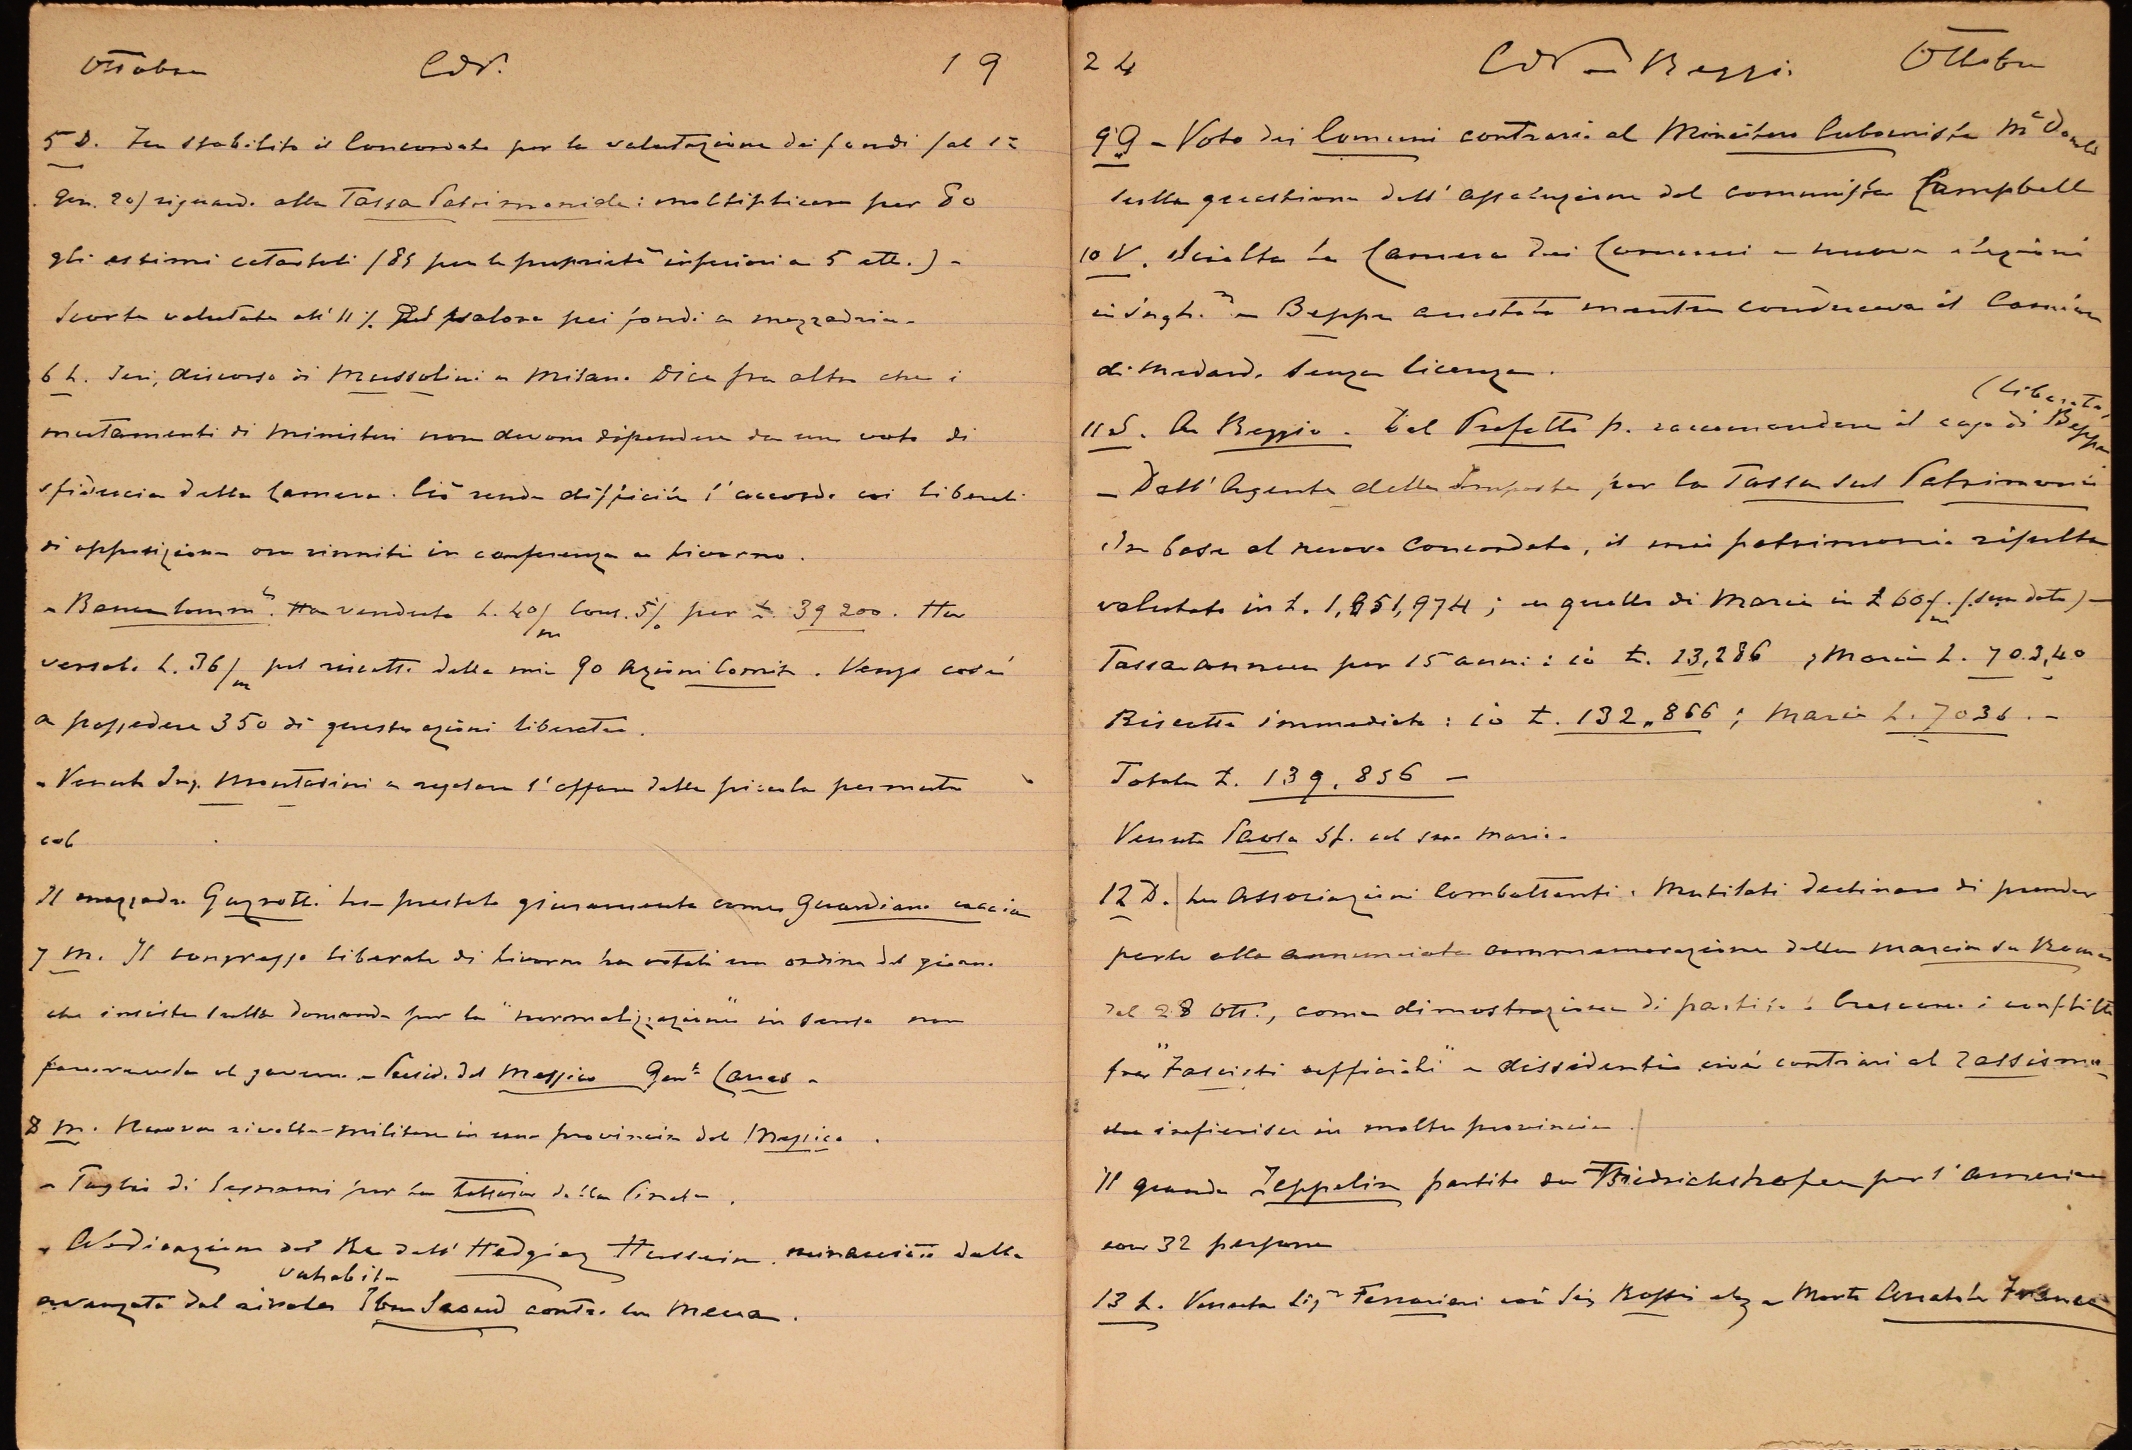 Ottobre CdV. 19
5 D. Fu stabilito il Concordato per la valutazione dei fondi (al 1º
Gen. 20) riguardo alla Tassa Patrimoniale: moltiplicare per 80
gli estimi catastali (85 per le proprietà inferiori a 5 ett.) -
Scorte valutate all'11% del valore pei fondi a mezzadria -
6 L. Ieri, discorso di Mussolini a Milano. Dice fra altro che i
mutamenti di Ministeri non devono dipendere da un voto di
sfiducia della Camera. Ciò rende difficile l'accordo coi liberali
di opposizione ora riuniti in conferenza a Livorno.
- Banca Comm. Ha venduto L. 40/m Cons. 5% per L. 39200. Ho
versato L. 36/m pel riscatto delle mie 90 Azioni Comit. Vengo così
a possedere 350 di queste azioni liberate.
- Venuto Ing. Montasini a regolare l'affare della piccola permuta
col
Il mezzadro Gazzotti ha prestato giuramento come Guardiano caccia
7 M. Il congresso liberale di Livorno ha votato un ordine del giorno
che insiste sulla domanda per la "normalizzazione" in senso non
favorevole al governo - Presid. del Messico Gen.e Calles -
8 M. Nuova rivolta militare in una provincia del Messico.
- Taglio di legnami per la tettoia della Pineta.
- Abdicazione del Re dell'Hedgiaz Hussein minacciato dalla
vahabita
avanzata del rivale Ibn Saoud contro la Mecca.
24 CdV - Reggio Ottobre
9 G - Voto dei Comuni contrario al Ministero Laburista Mc Donald
sulla questione dell'assoluzione del comunista Campbell
10 V. Sciolta la Camera dei Comuni e nuove elezioni
in Ingh.ra - Beppe arrestato mentre conduceva il Camion
di Medardo senza licenza.
(liberato)
11 S. A Reggio. Dal Prefetto p. raccomandare il caso di Beppe.
- Dall'Agente delle Imposte per la Tassa sul Patrimonio
In base al nuovo Concordato, il mio patrimonio risulta
valutato in L. 1,851,974; e quello di Maria in L 60/m. (sua dote) -
Tassa annua per 15 anni: io L. 13,286; Maria L. 703,40
Riscatto immediato: io L. 132.866; Maria L. 7036. -
Totale L. 139.856 -
Venuta Paola Sf. col suo Mario.
12 D. Le Associazioni Combattenti e Mutilati declinano di prender
parte alla annunciata commemorazione della marcia su Roma
del 28 Ott., come dimostrazione di partito. Crescono i conflitti
fra "Fascisti ufficiali" e dissidenti cioè contrari al rassismo
che infierisce in molte provincie.
Il grande Zeppelin partito da Friedrichshafen per l'America
con 32 persone
13 L. Venuta Sig.ra Ferrarini coi Sig. Rossi - Morto Anatole France